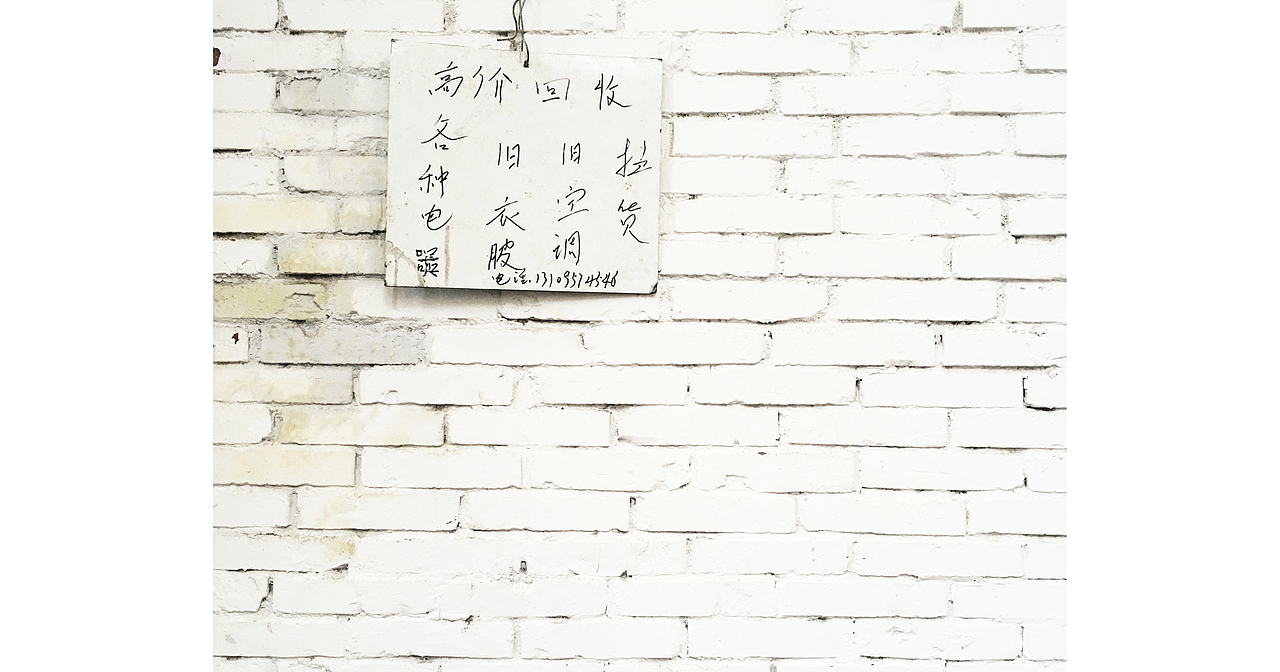 高价回收
各种电器
旧衣服
旧空调
拉货
电话.13109514546